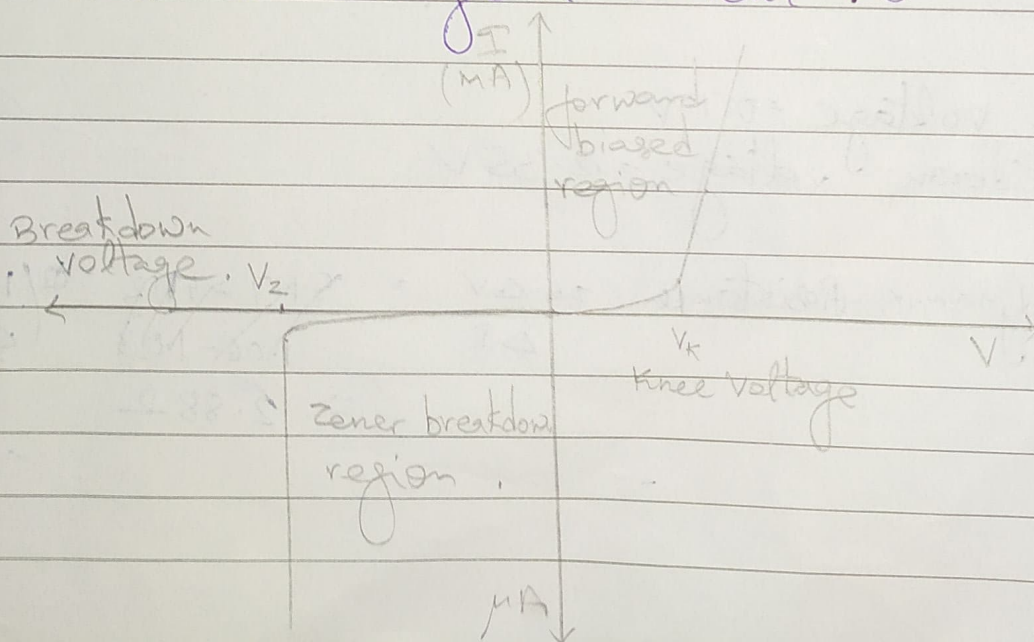 I
(mA)
forward
biased
region
Breakdown
voltage. Vz
VK
V
Knee Voltage
Zener breakdown
region.
μA